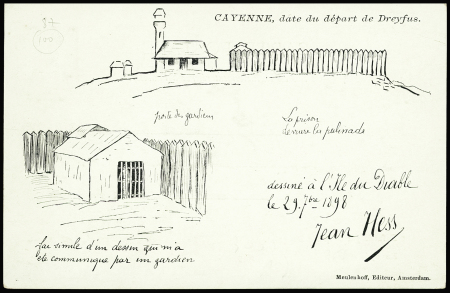 CAYENNE, date du départ de Dreyfus.
poste du gardien
La prison
derrière les palissads
dessiné à l'Ile du Diable
le 29 7bre 1898
Jean Hess
fac simile d'un dessin qui m'a
été communiqué par un gardien
Meulenhoff, Editeur, Amsterdam.